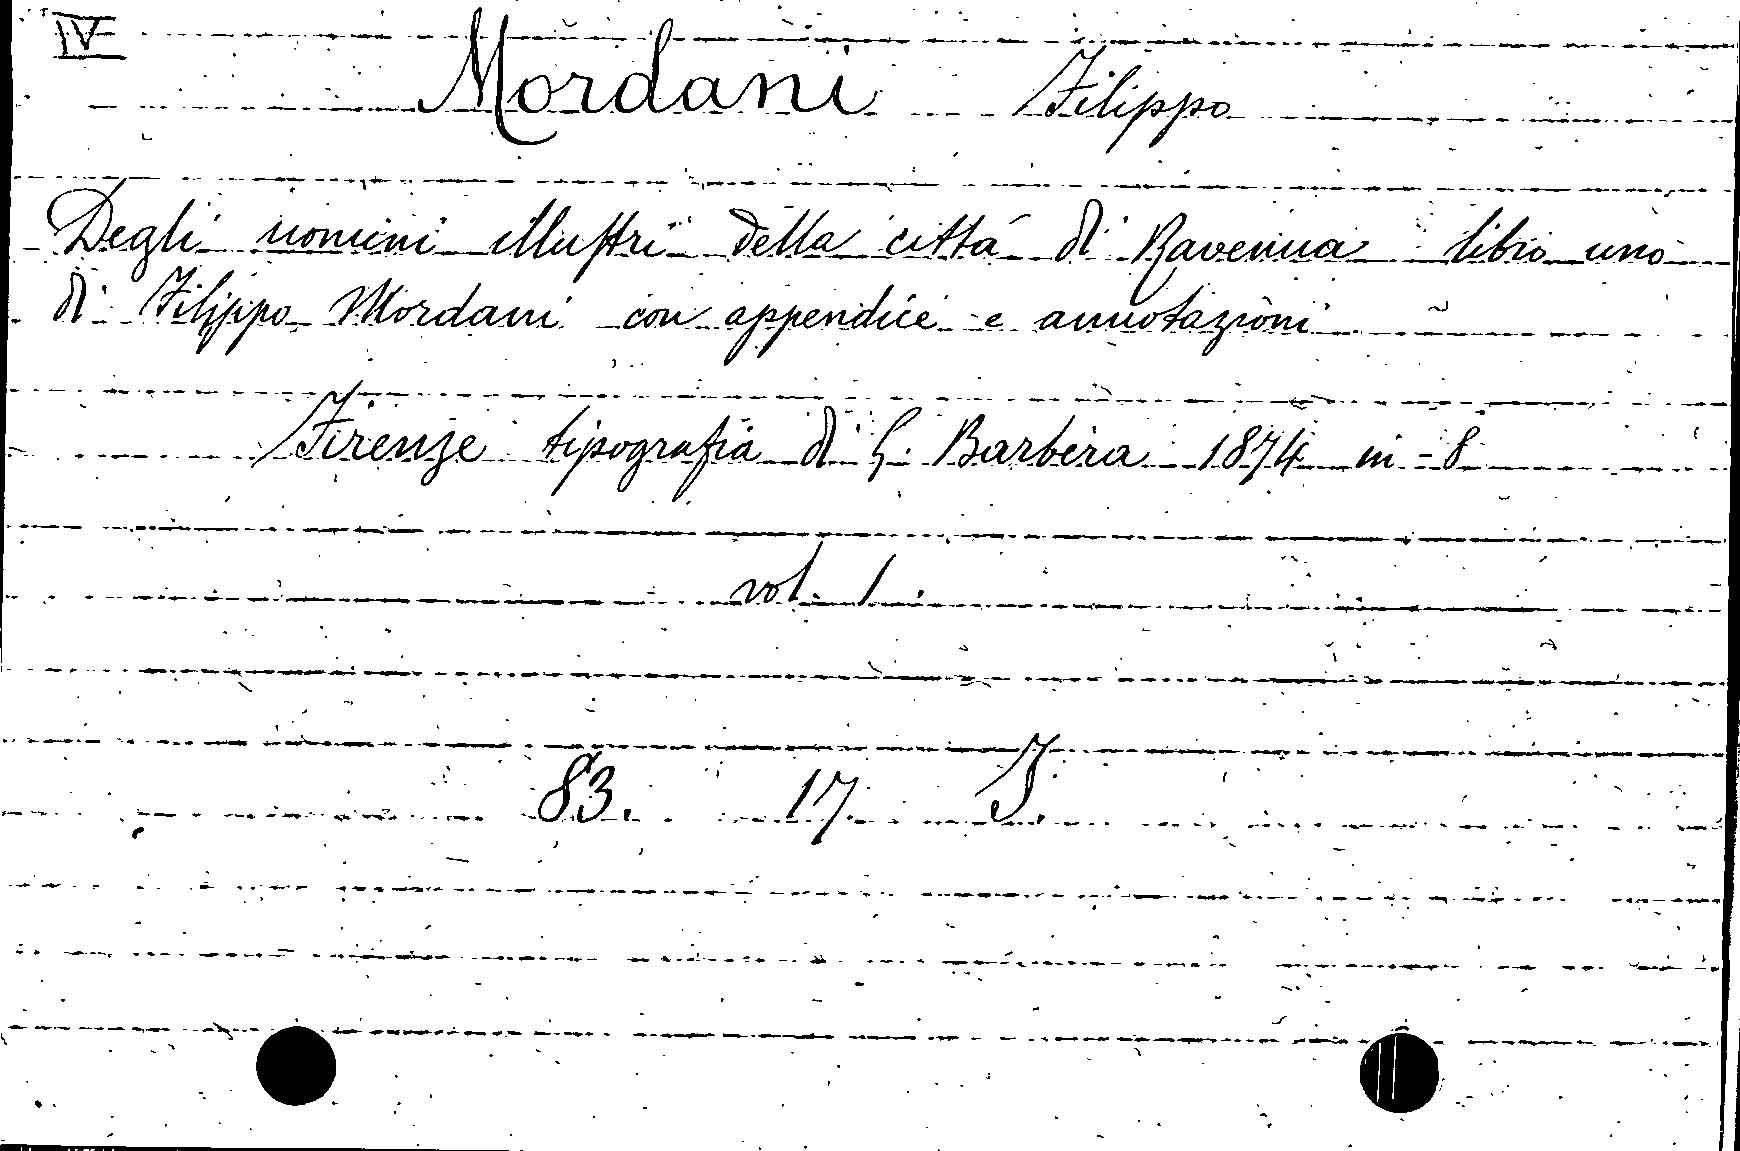 IV
Mordani Filippo
Degli uomini illustri della cittá di Ravenna libro uno
di Filippo Mordani con appendice e annotazioni
Firenze tipografia di G. Barbèra 1874 in-8
vol. 1.
83. 17 J.